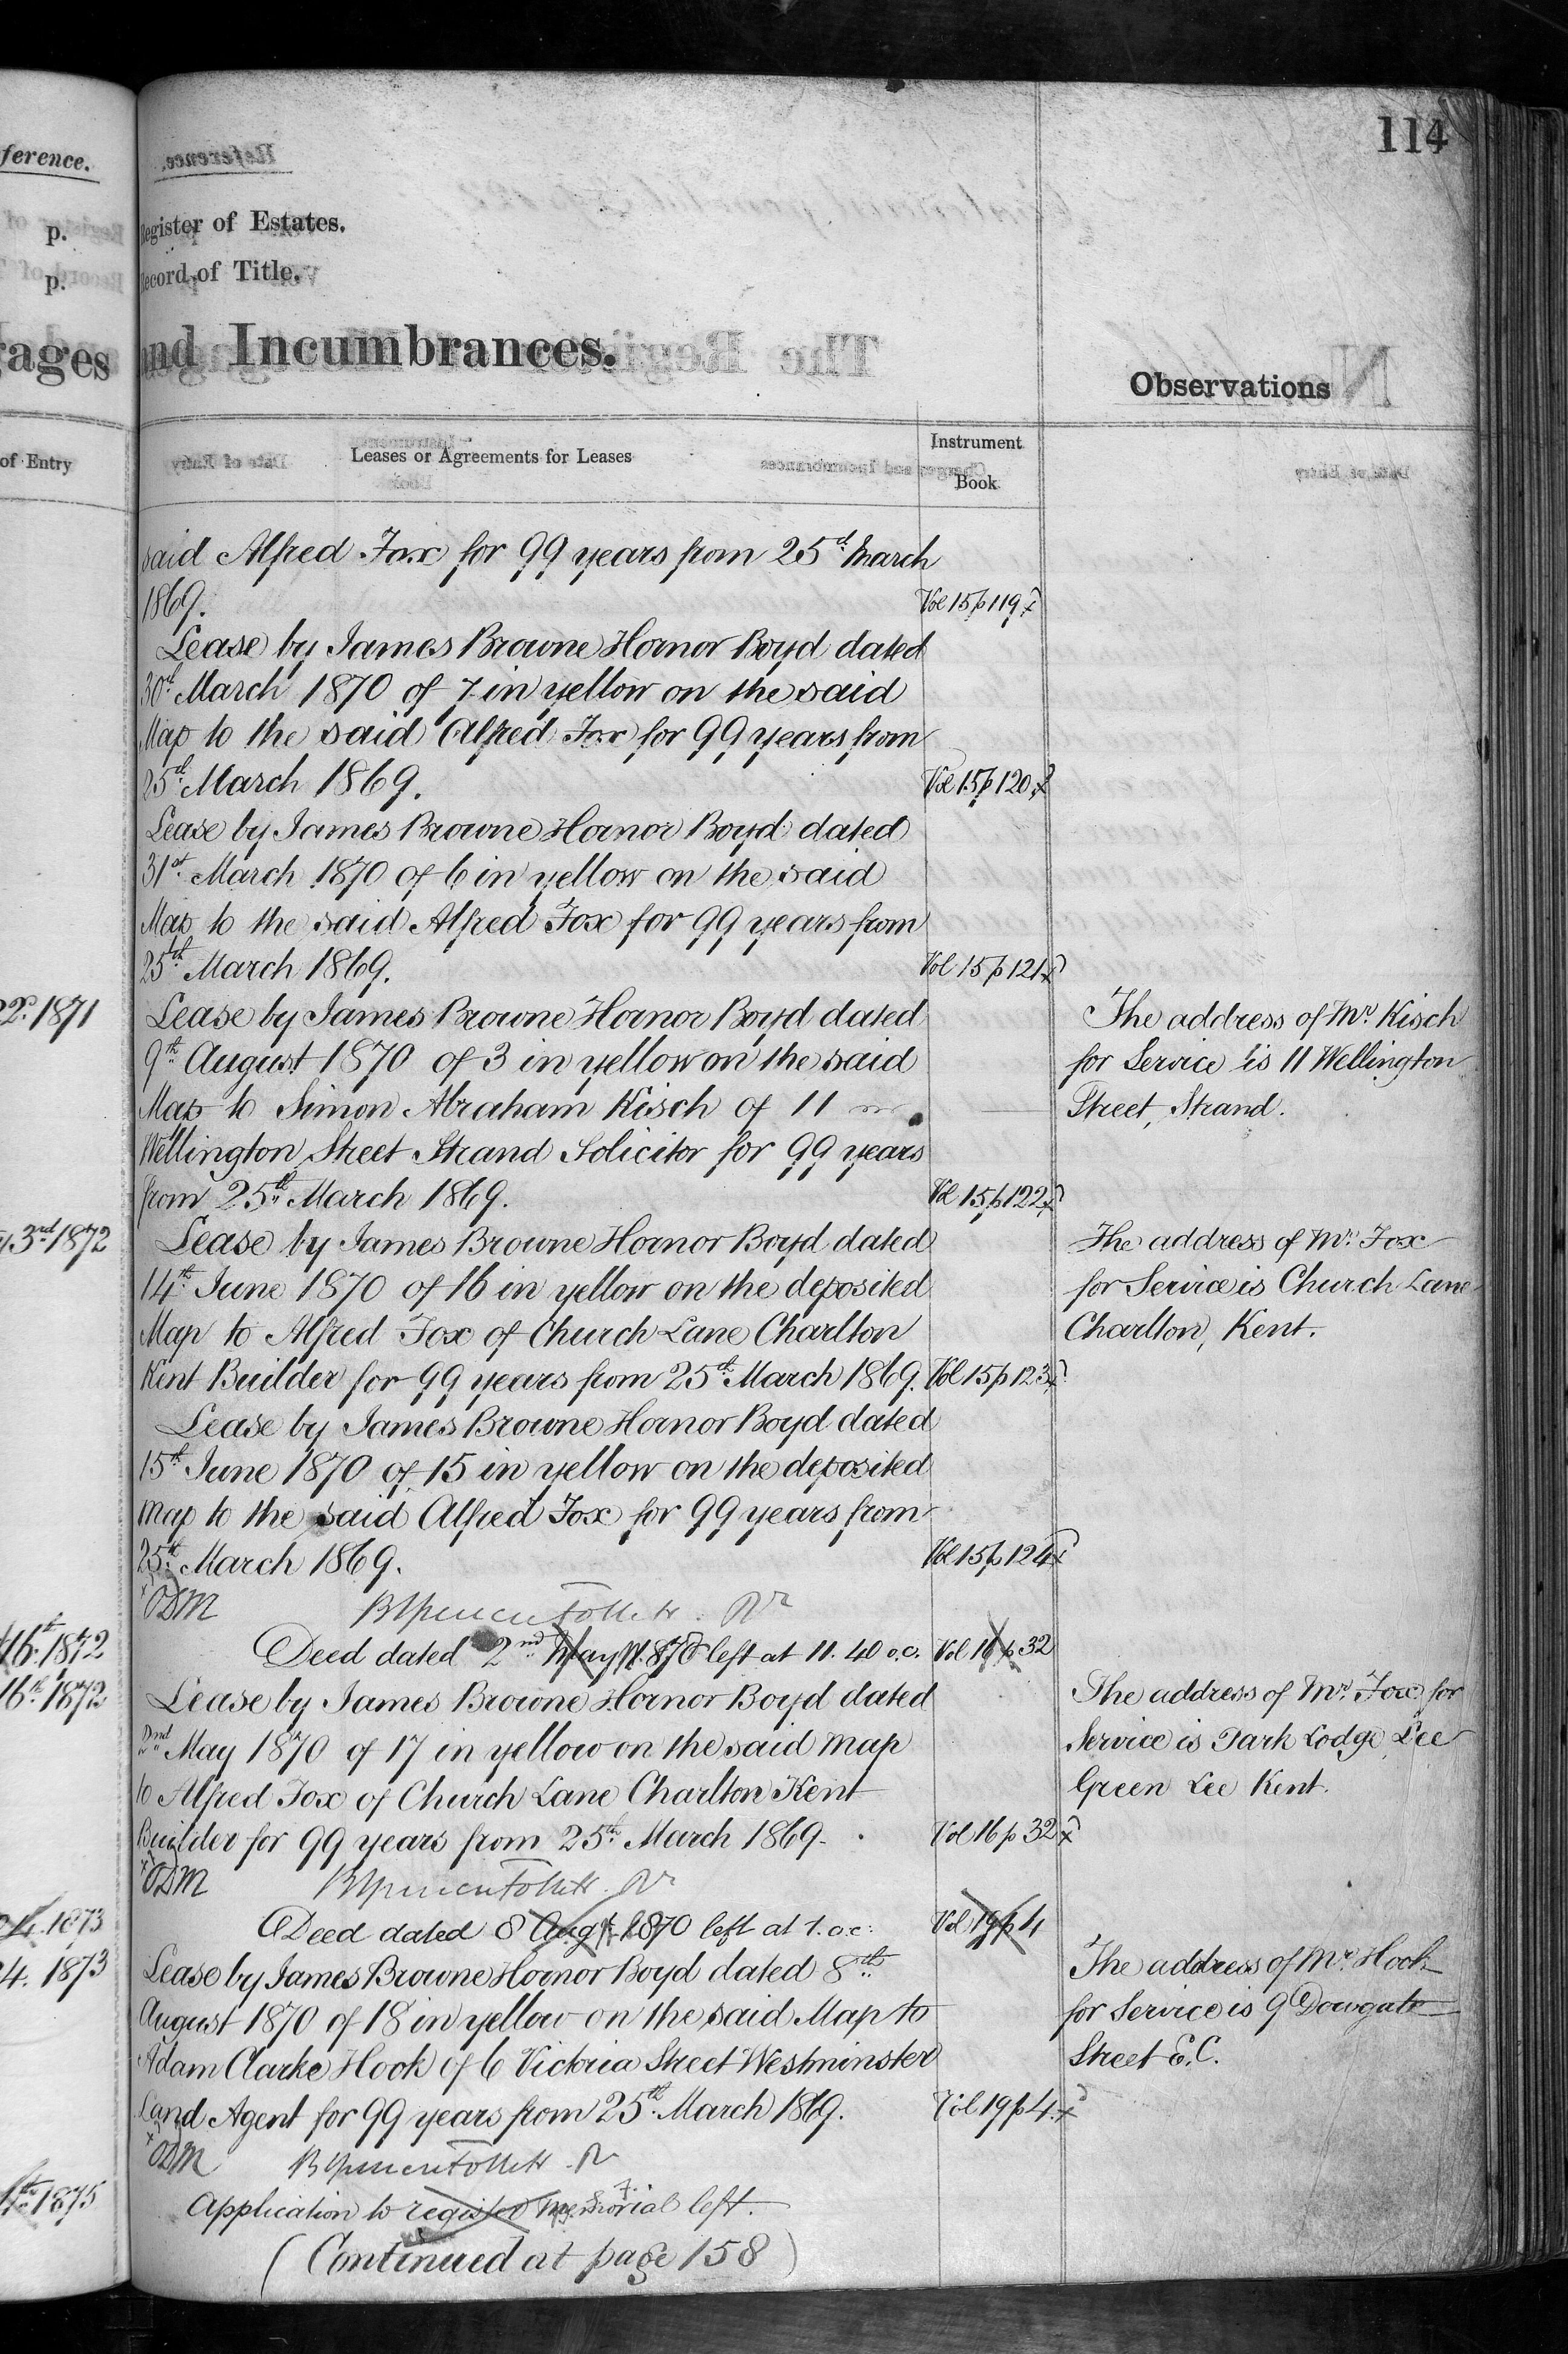 114
ference.
p. Register of Estates.
p. Record of Title.
rages and Incumbrances.
Observations
of Entry
Leases or Agreements for Leases
Instrument
Book
said Alfred Fox for 99 years from 25th March
1869. Vol 15 p 119
Lease by James Browne Hornor Boyd dated
30th March 1870 of 7 in yellow on the said
Map to the said Alfred Fox for 99 years from
25th March 1869. Vol 15 p 120
Lease by James Browne Hornor Boyd dated
31st March 1870 of 6 in yellow on the said
Map to the said Alfred Fox for 99 years from
25th March 1869. Vol 15 p 121
22d 1871 Lease by James Browne Hornor Boyd dated The address of Mr. Kisch
9th August 1870 of 3 in yellow on the said for Service is 11 Wellington
Map to Simon Abraham Kisch of 11 Street, Strand.
Wellington Street Strand Solicitor for 99 years
from 25th March 1869. Vol 15 p 122
3rd 1872 Lease by James Browne Hornor Boyd dated The address of Mr. Fox
14th June 1870 of 16 in yellow on the deposited for Service is Church Lane
Map to Alfred Fox of Church Lane Charlton Charlton, Kent.
Kent Builder for 99 years from 25th March 1869. Vol 15 p 123
Lease by James Browne Hornor Boyd dated
15th June 1870 of 15 in yellow on the deposited
Map to the said Alfred Fox for 99 years from
25th March 1869. Vol 15 p 124
ODM
16th 1872 Deed dated 2nd May 1870 left at 11.40 o.c. Vol 16 p 32
16th 1872 Lease by James Browne Hornor Boyd dated The address of Mr. Fox for
2nd May 1870 of 17 in yellow on the said Map Service is Park Lodge, Lee
to Alfred Fox of Church Lane Charlton Kent Green Lee Kent.
Builder for 99 years from 25th March 1869. Vol 16 p 32
ODM
24. 1873 Deed dated 8 Augt. 1870 left at 1. o.c. Vol 19 p 4
24. 1873 Lease by James Browne Hornor Boyd dated 8th The address of Mr. Hook
August 1870 of 18 in yellow on the said Map to for Service is 9 Dowgate
Adam Clarke Hook of 6 Victoria Street Westminster Street E.C.
Land Agent for 99 years from 25th March 1869. Vol 19 p 4.
ODM
1875 Application to register Memorial left.
(Continued at page 158)